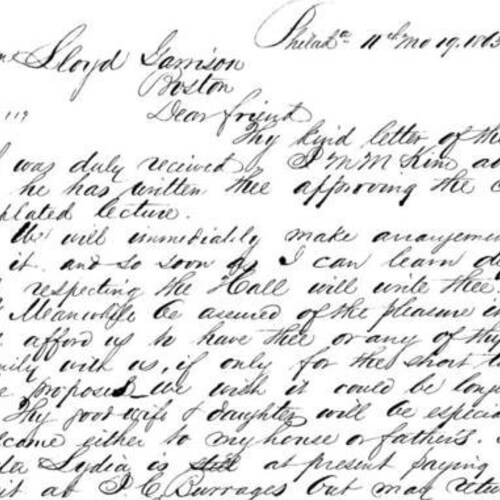 Philada 11th mo 19. 186
Lloyd Garrison
Boston
Dear friend
Thy kind letter of the
was duly received J M McKim
he has written thee approving the
plated lecture.
We will immediately make arrangemen
it. and so soon as I can learn de
respecting the Hall will write thee.
Meanwhile be assured of the pleasure
afford us to have thee or any of thy
mily with us, if only for the short
proposed - We wish it could be long
Thy good wife & daughter will be especial
lcome either to my house or fathers.
Lydia is still at present paying
it at J C Burrages but may retur